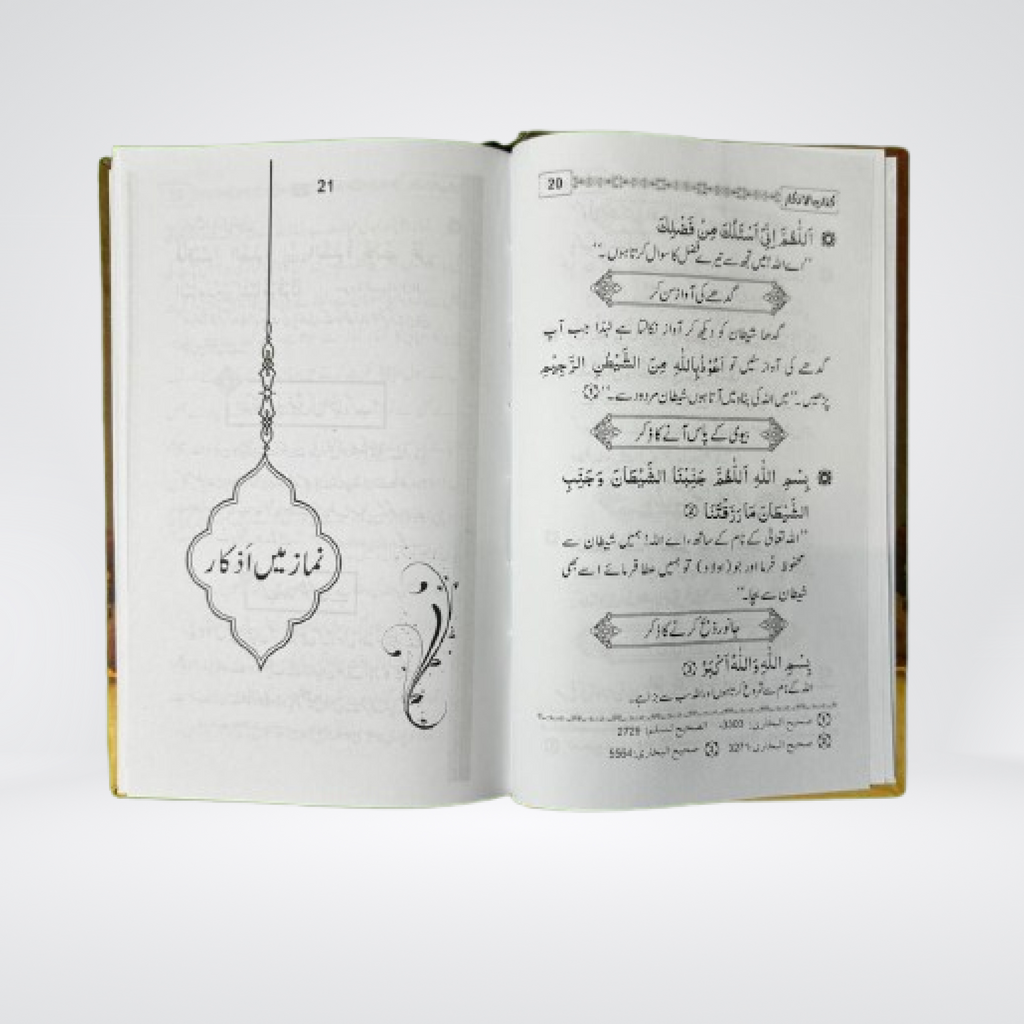 20
اَللّٰهُمَّ اِنِّىْ اَسْئَلُكَ مِنْ فَضْلِكَ
"اے اللہ! میں تجھ سے تیرے فضل کا سوال کرتا ہوں۔"
گدھے کی آواز سن کر
گدھا شیطان کو دیکھ کر آواز نکالتا ہے لہٰذا جب آپ
گدھے کی آواز سنیں تو اَعُوْذُ بِاللّٰهِ مِنَ الشَّيْطٰنِ الرَّجِيْمِ
پڑھیں۔ "میں اللہ کی پناہ میں آتا ہوں شیطان مردود سے۔" ①
بیوی کے پاس آنے کا ذکر
بِسْمِ اللّٰهِ اَللّٰهُمَّ جَنِّبْنَا الشَّيْطَانَ وَجَنِّبِ
الشَّيْطَانَ مَا رَزَقْتَنَا ②
"اللہ تعالیٰ کے نام کے ساتھ، اے اللہ! ہمیں شیطان سے
محفوظ فرما اور جو (اولاد) تو ہمیں عطا فرمائے اسے بھی
شیطان سے بچا۔"
جانور ذبح کرنے کا ذکر
بِسْمِ اللّٰهِ وَاللّٰهُ اَكْبَرُ ③
اللہ کے نام سے شروع کرتا ہوں اور اللہ سب سے بڑا ہے۔
① صحیح البخاری: 3303، الصحیح لمسلم: 2729
② صحیح البخاری: 3271 ③ صحیح البخاری: 5564
21
نماز میں اَذکار